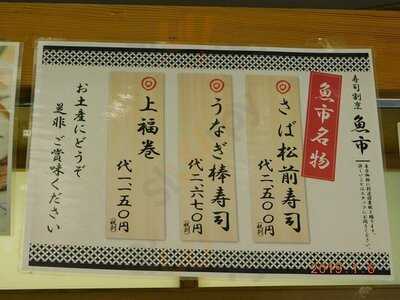 寿司割烹 魚市
魚市名物
◎さば松前寿司
代二、五〇〇円
税別
◎うなぎ棒寿司
代二、六七〇円
税別
◎上福巻
代一、一五〇円
税別
お土産にどうぞ
是非ご賞味ください
2015 1 6